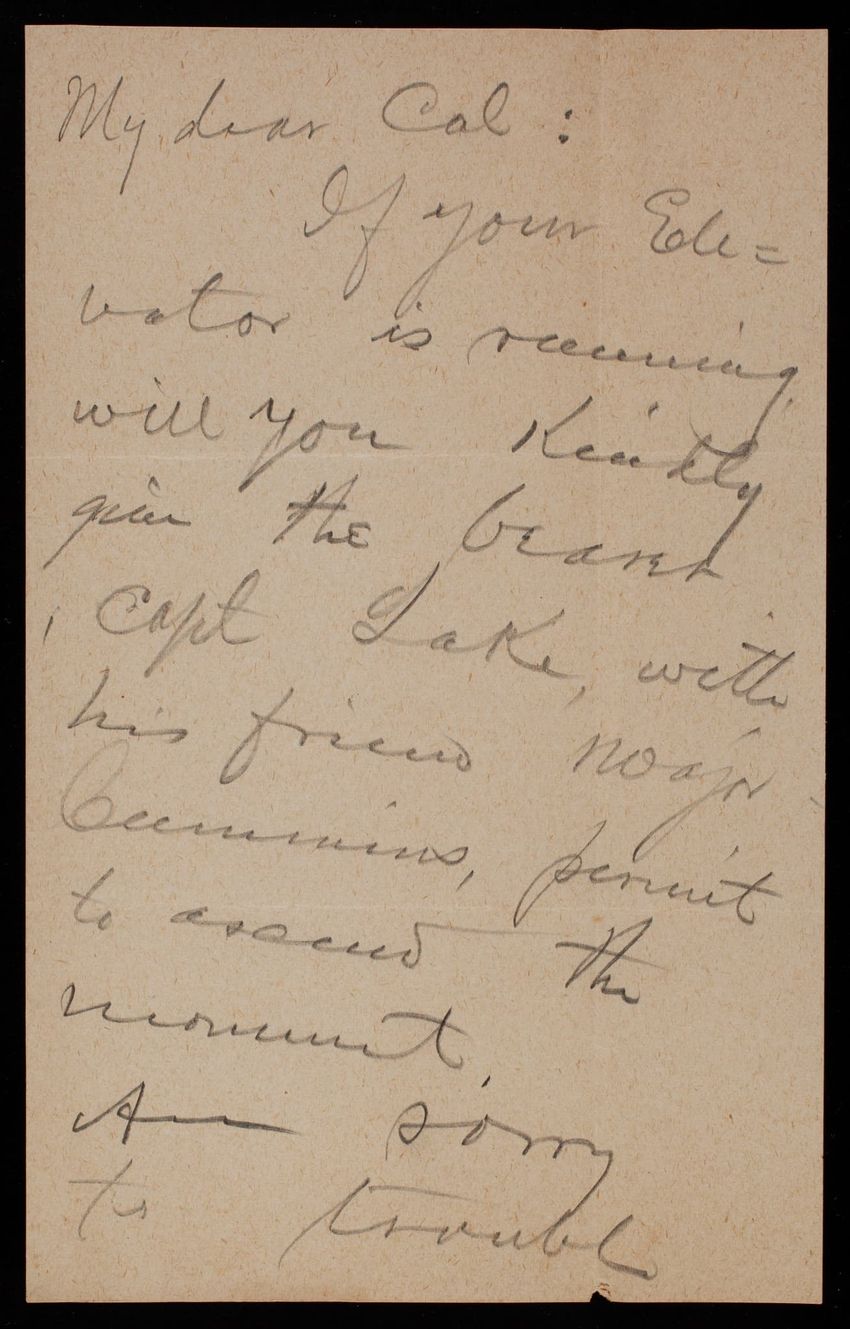 My dear Col :
If your Ele=
vator is running
will you Kindly
give the bearer
, Capt Lake, with
his friend Major
Cummins, permit
to ascend the
monument.
Am sorry
to trouble